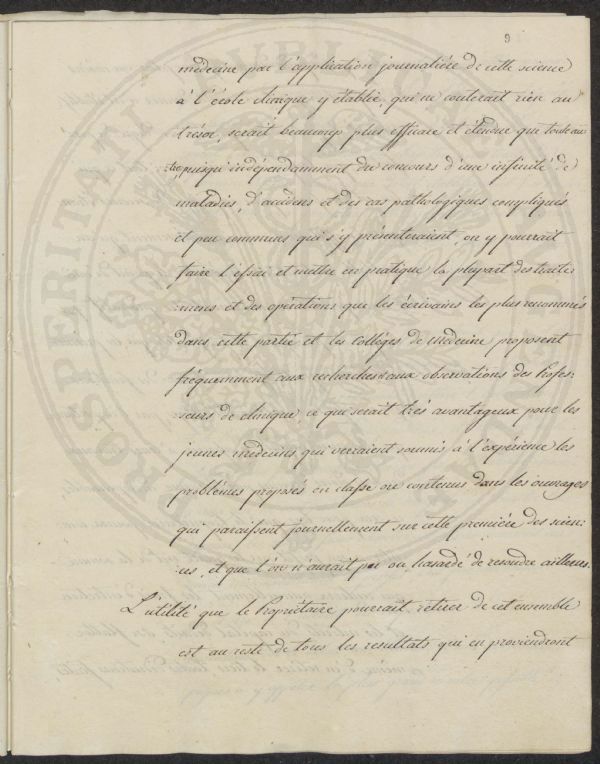 9
médecine par l'application journalière de cette science
à l'école clinique y établie, qui ne couterait rien au
trésor, serait beaucoup plus efficace et étendue que toute au:
tre, puisqu'indépendamment du concours d'une infinité de
maladies, d'accidens et des cas pathologiques compliqués
et peu communs qui s'y présenteraient, on y pourrait
faire l'essai et mettre en pratique la plupart des traite:
mens et des opérations que les écrivains les plus renommés
dans cette partie et les collèges de médecine proposent
fréquemment aux recherches et aux observations des Profes:
seurs de clinique, ce qui serait très avantageux pour les
jeunes médecins qui verraient soumis à l'expérience les
problèmes proposés en classe ou contenus dans les ouvrages
qui paraissent journellement sur cette première des scien:
ces, et que l'on n'aurait pu ou hasardé de resoudre ailleurs.
L'utilité que le Propriétaire pourrait retirer de cet ensemble
est au reste de tous les resultats qui en proviendront
PROSPERITATI PUBLICAE